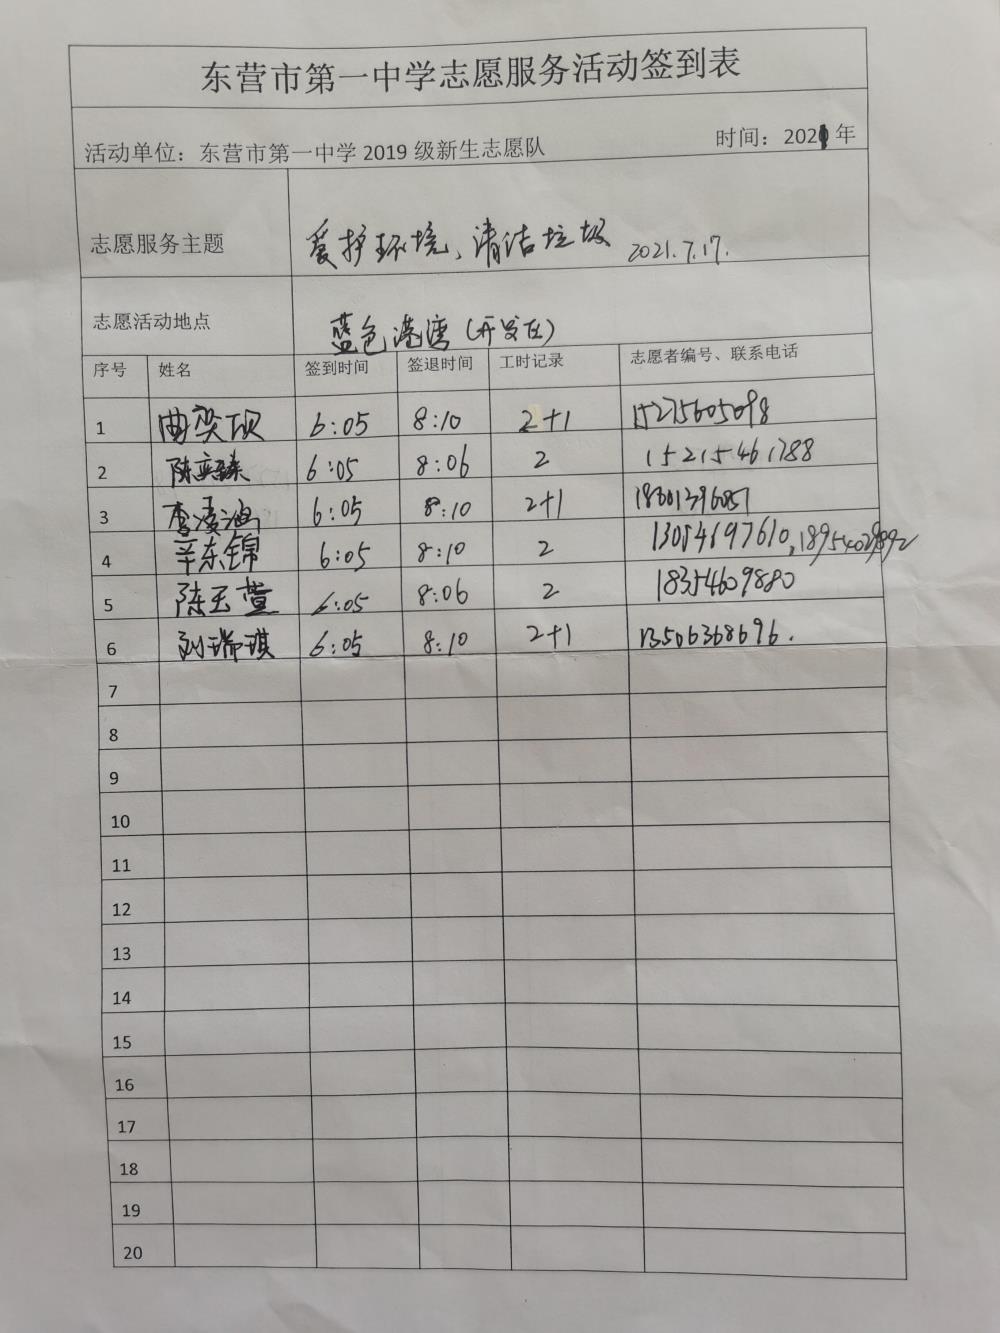 东营市第一中学志愿服务活动签到表
活动单位：东营市第一中学2019级新生志愿队 时间：2021年
志愿服务主题 爱护环境、清洁垃圾 2021.7.17.
志愿活动地点 蓝色港湾(开发区)
序号 姓名 签到时间 签退时间 工时记录 志愿者编号、联系电话
1 曲奕 6:05 8:10 2+1 15275605098
2 陈 6:05 8:06 2 15215461788
3 李凌涵 6:05 8:10 2+1
4 辛东锦 6:05 8:10 2 13054697610,18954029892
5 陈玉萱 6:05 8:06 2 18354609880
6 刘瑞琪 6:05 8:10 2+1 13506368696.
7
8
9
10
11
12
13
14
15
16
17
18
19
20